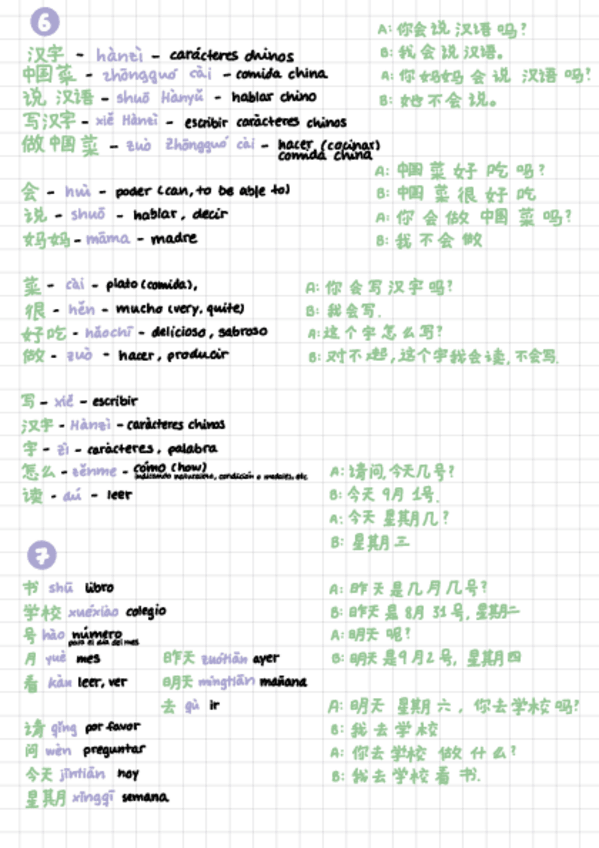 6
汉字 - hànzì - carácteres chinos
中国菜 - zhōngguó cài - comida china
说 汉语 - shuō Hànyǔ - hablar chino
写汉字 - xiě Hànzì - escribir carácteres chinos
做中国菜 - zuò Zhōngguó cài - hacer (cocinar)
comida china
A: 你会说汉语吗?
B: 我会说汉语。
A: 你妈妈会说 汉语吗?
B: 她不会说。
会 - huì - poder (can, to be able to)
说 - shuō - hablar, decir
妈妈 - māma - madre
A: 中国菜好吃吗?
B: 中国菜很好吃
A: 你会做中国菜吗?
B: 我不会做
菜 - cài - plato (comida),
很 - hěn - mucho (very, quite)
好吃 - hǎochī - delicioso, sabroso
做 - zuò - hacer, producir
A: 你会写汉字吗?
B: 我会写.
A: 这个字怎么写?
B: 对不起, 这个字我会读, 不会写.
写 - xiě - escribir
汉字 - Hànzì - carácteres chinos
字 - zì - carácteres, palabra
怎么 - zěnme - cómo (how)
indicando naturaleza, condición o modales, etc
读 - dú - leer
A: 请问, 今天几号?
B: 今天 9月 1号.
A: 今天 星期几?
B: 星期三
7
书 shū libro
学校 xuéxiào colegio
号 hào número
para el día del mes
月 yuè mes
看 kàn leer, ver
昨天 zuótiān ayer
明天 míngtiān mañana
去 qù ir
请 qǐng por favor
问 wèn preguntar
今天 jīntiān hoy
星期 xīngqī semana
A: 昨天是几月几号?
B: 昨天是 8月 31号, 星期二
A: 明天呢?
B: 明天是9月2号, 星期四
A: 明天 星期六, 你去学校吗?
B: 我去学校
A: 你去学校 做什么?
B: 我去学校看书.